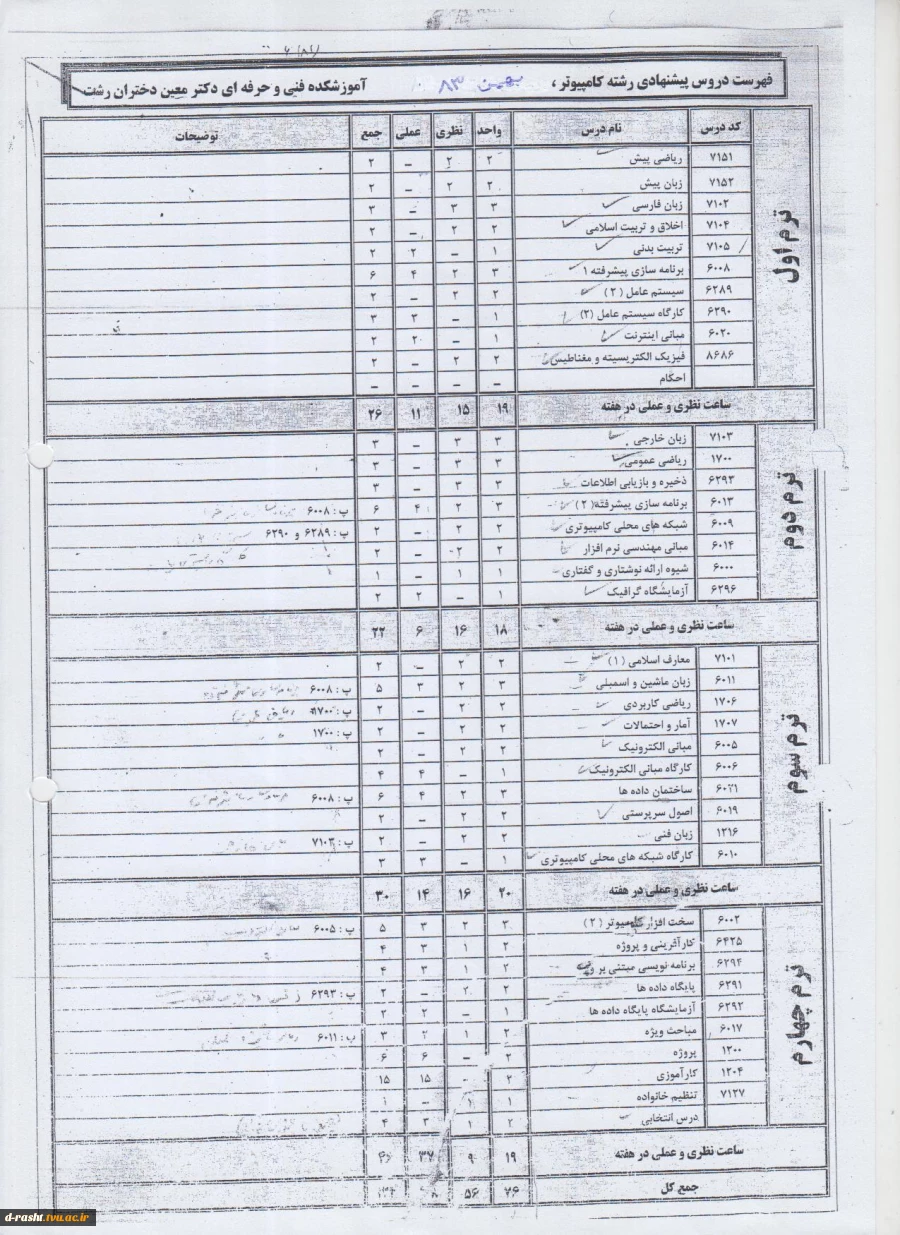 فهرست دروس پیشنهادی رشته کامپیوتر ، بهمن ۸۳ آموزشکده فنی و حرفه ای دکتر معین دختران رشت
کد درس نام درس واحد نظری عملی جمع توضیحات
ترم اول
۷۱۵۱ ریاضی پیش ۲ ۲ – ۲
۷۱۵۲ زبان پیش ۲ ۲ – ۲
۷۱۰۲ زبان فارسی ۳ ۳ – ۳
۷۱۰۴ اخلاق و تربیت اسلامی ۲ ۲ – ۲
۷۱۰۵ تربیت بدنی ۱ – ۲ ۲
۶۰۰۸ برنامه سازی پیشرفته ۱ ۳ ۲ ۴ ۶
۶۲۸۹ سیستم عامل (۲) ۲ ۲ – ۲
۶۲۹۰ کارگاه سیستم عامل (۲) ۱ – ۳ ۳
۶۰۲۰ مبانی اینترنت ۱ – ۲ ۲
۸۶۸۶ فیزیک الکتریسیته و مغناطیس ۲ ۲ – ۲
احکام – – – –
ساعت نظری و عملی در هفته ۱۹ ۱۵ ۱۱ ۲۶
ترم دوم
۷۱۰۳ زبان خارجی ۳ ۳ – ۳
۱۷۰۰ ریاضی عمومی ۳ ۳ – ۳
۶۲۹۳ ذخیره و بازیابی اطلاعات ۳ ۳ – ۳
۶۰۱۳ برنامه سازی پیشرفته (۲) ۳ ۲ ۴ ۶ پ : ۶۰۰۸
۶۰۰۹ شبکه های محلی کامپیوتری ۲ ۲ – ۲ پ : ۶۲۸۹ و ۶۲۹۰
۶۰۱۴ مبانی مهندسی نرم افزار ۲ ۲ – ۲
۶۰۰۰ شیوه ارائه نوشتاری و گفتاری ۱ ۱ – ۱
۶۲۹۶ آزمایشگاه گرافیک ۱ – ۲ ۲
ساعت نظری و عملی در هفته ۱۸ ۱۶ ۶ ۲۲
ترم سوم
۷۱۰۱ معارف اسلامی (۱) ۲ ۲ – ۲
۶۰۱۱ زبان ماشین و اسمبلی ۳ ۲ ۳ ۵ پ : ۶۰۰۸
۱۷۰۶ ریاضی کاربردی ۲ ۲ – ۲ پ : ۱۷۰۰
۱۷۰۷ آمار و احتمالات ۲ ۲ – ۲ پ : ۱۷۰۰
۶۰۰۵ مبانی الکترونیک ۲ ۲ – ۲
۶۰۰۶ کارگاه مبانی الکترونیک ۱ – ۴ ۴
۶۰۲۱ ساختمان داده ها ۳ ۲ ۴ ۶ پ : ۶۰۰۸
۶۰۱۹ اصول سرپرستی ۲ ۲ – ۲
۱۲۱۶ زبان فنی ۲ ۲ – ۲ پ : ۷۱۰۳
۶۰۱۰ کارگاه شبکه های محلی کامپیوتری ۱ – ۳ ۳
ساعت نظری و عملی در هفته ۲۰ ۱۶ ۱۴ ۳۰
ترم چهارم
۶۰۰۲ سخت افزار کامپیوتر (۲) ۳ ۲ ۳ ۵ پ : ۶۰۰۵
۶۴۲۵ کارآفرینی و پروژه ۲ ۱ ۳ ۴
۶۲۹۴ برنامه نویسی مبتنی بر وب ۲ ۱ ۳ ۴
۶۲۹۱ پایگاه داده ها ۲ ۲ – ۲ پ : ۶۲۹۳
۶۲۹۲ آزمایشگاه پایگاه داده ها ۱ – ۲ ۲
۶۰۱۷ مباحث ویژه ۲ ۱ ۲ ۳ پ : ۶۰۱۱
۱۲۰۰ پروژه ۲ – ۶ ۶
۱۲۰۴ کارآموزی ۲ – ۱۵ ۱۵
۷۱۲۷ تنظیم خانواده ۱ ۱ – ۱
درس انتخابی ۲ ۱ ۳ ۴
ساعت نظری و عملی در هفته ۱۹ ۹ ۳۷ ۴۶
جمع کل ۷۶ ۵۶
d-rasht.tvu.ac.ir